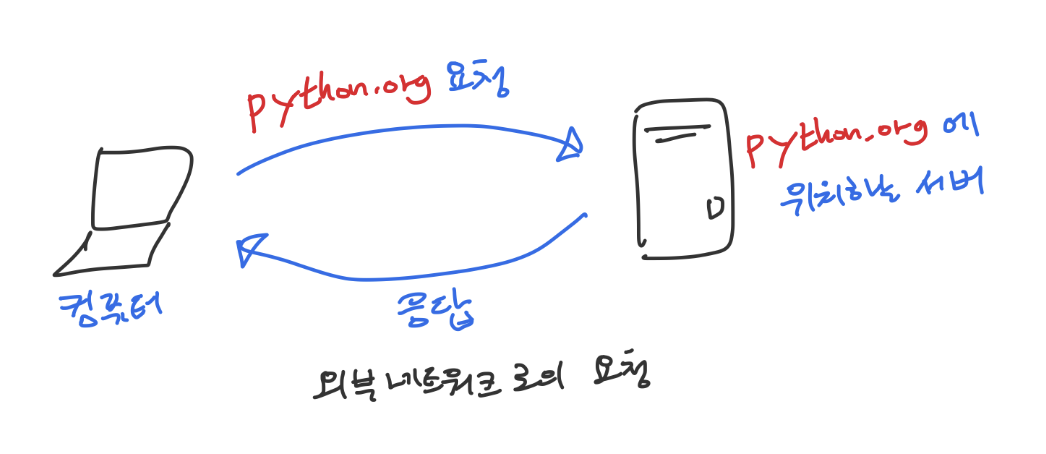 python.org 요청
python.org 에
위치한 서버
컴퓨터
응답
외부 네트워크로의 요청